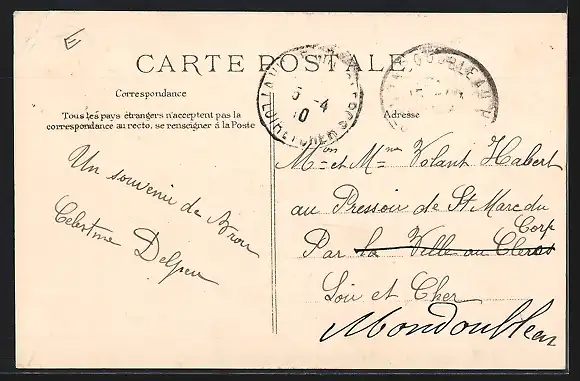 E
CARTE POSTALE
Correspondance
Tous les pays étrangers n'acceptent pas la
correspondance au recto, se renseigner à la Poste
Un souvenir de
Celestine
LA VILLE AUX CLERCS
5 -4
10
LOIR-ET-CHER
MONDOUBLEAU
Adresse
Mon et Mme Volant Habert
au Pressoir de St Marc du
Corp
Par la Ville au Clercs
Loir et Cher
Mondoubleau